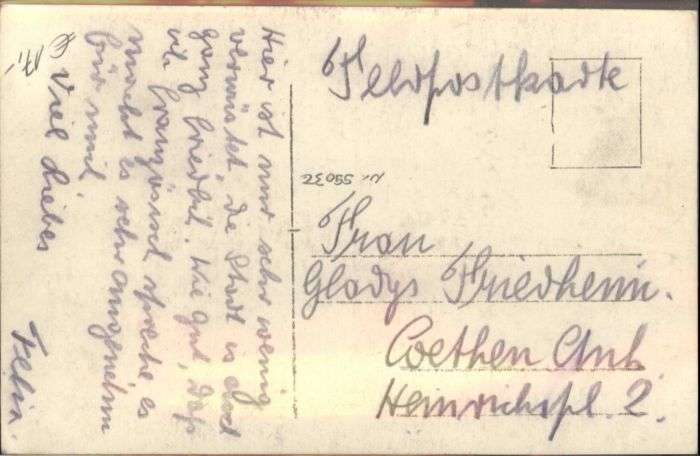 Feldpostkarte
Frau
Gladys Friedheim.
Coethen Anh.
Heinrichspl. 2.
Hier ist nur sehr wenig
verwüstet die Stadt doch
ganz Wie gut, daß
ich französisch spreche es
macht es sehr angenehm
für mich
Viel Liebes
Felix.
€ 17,-